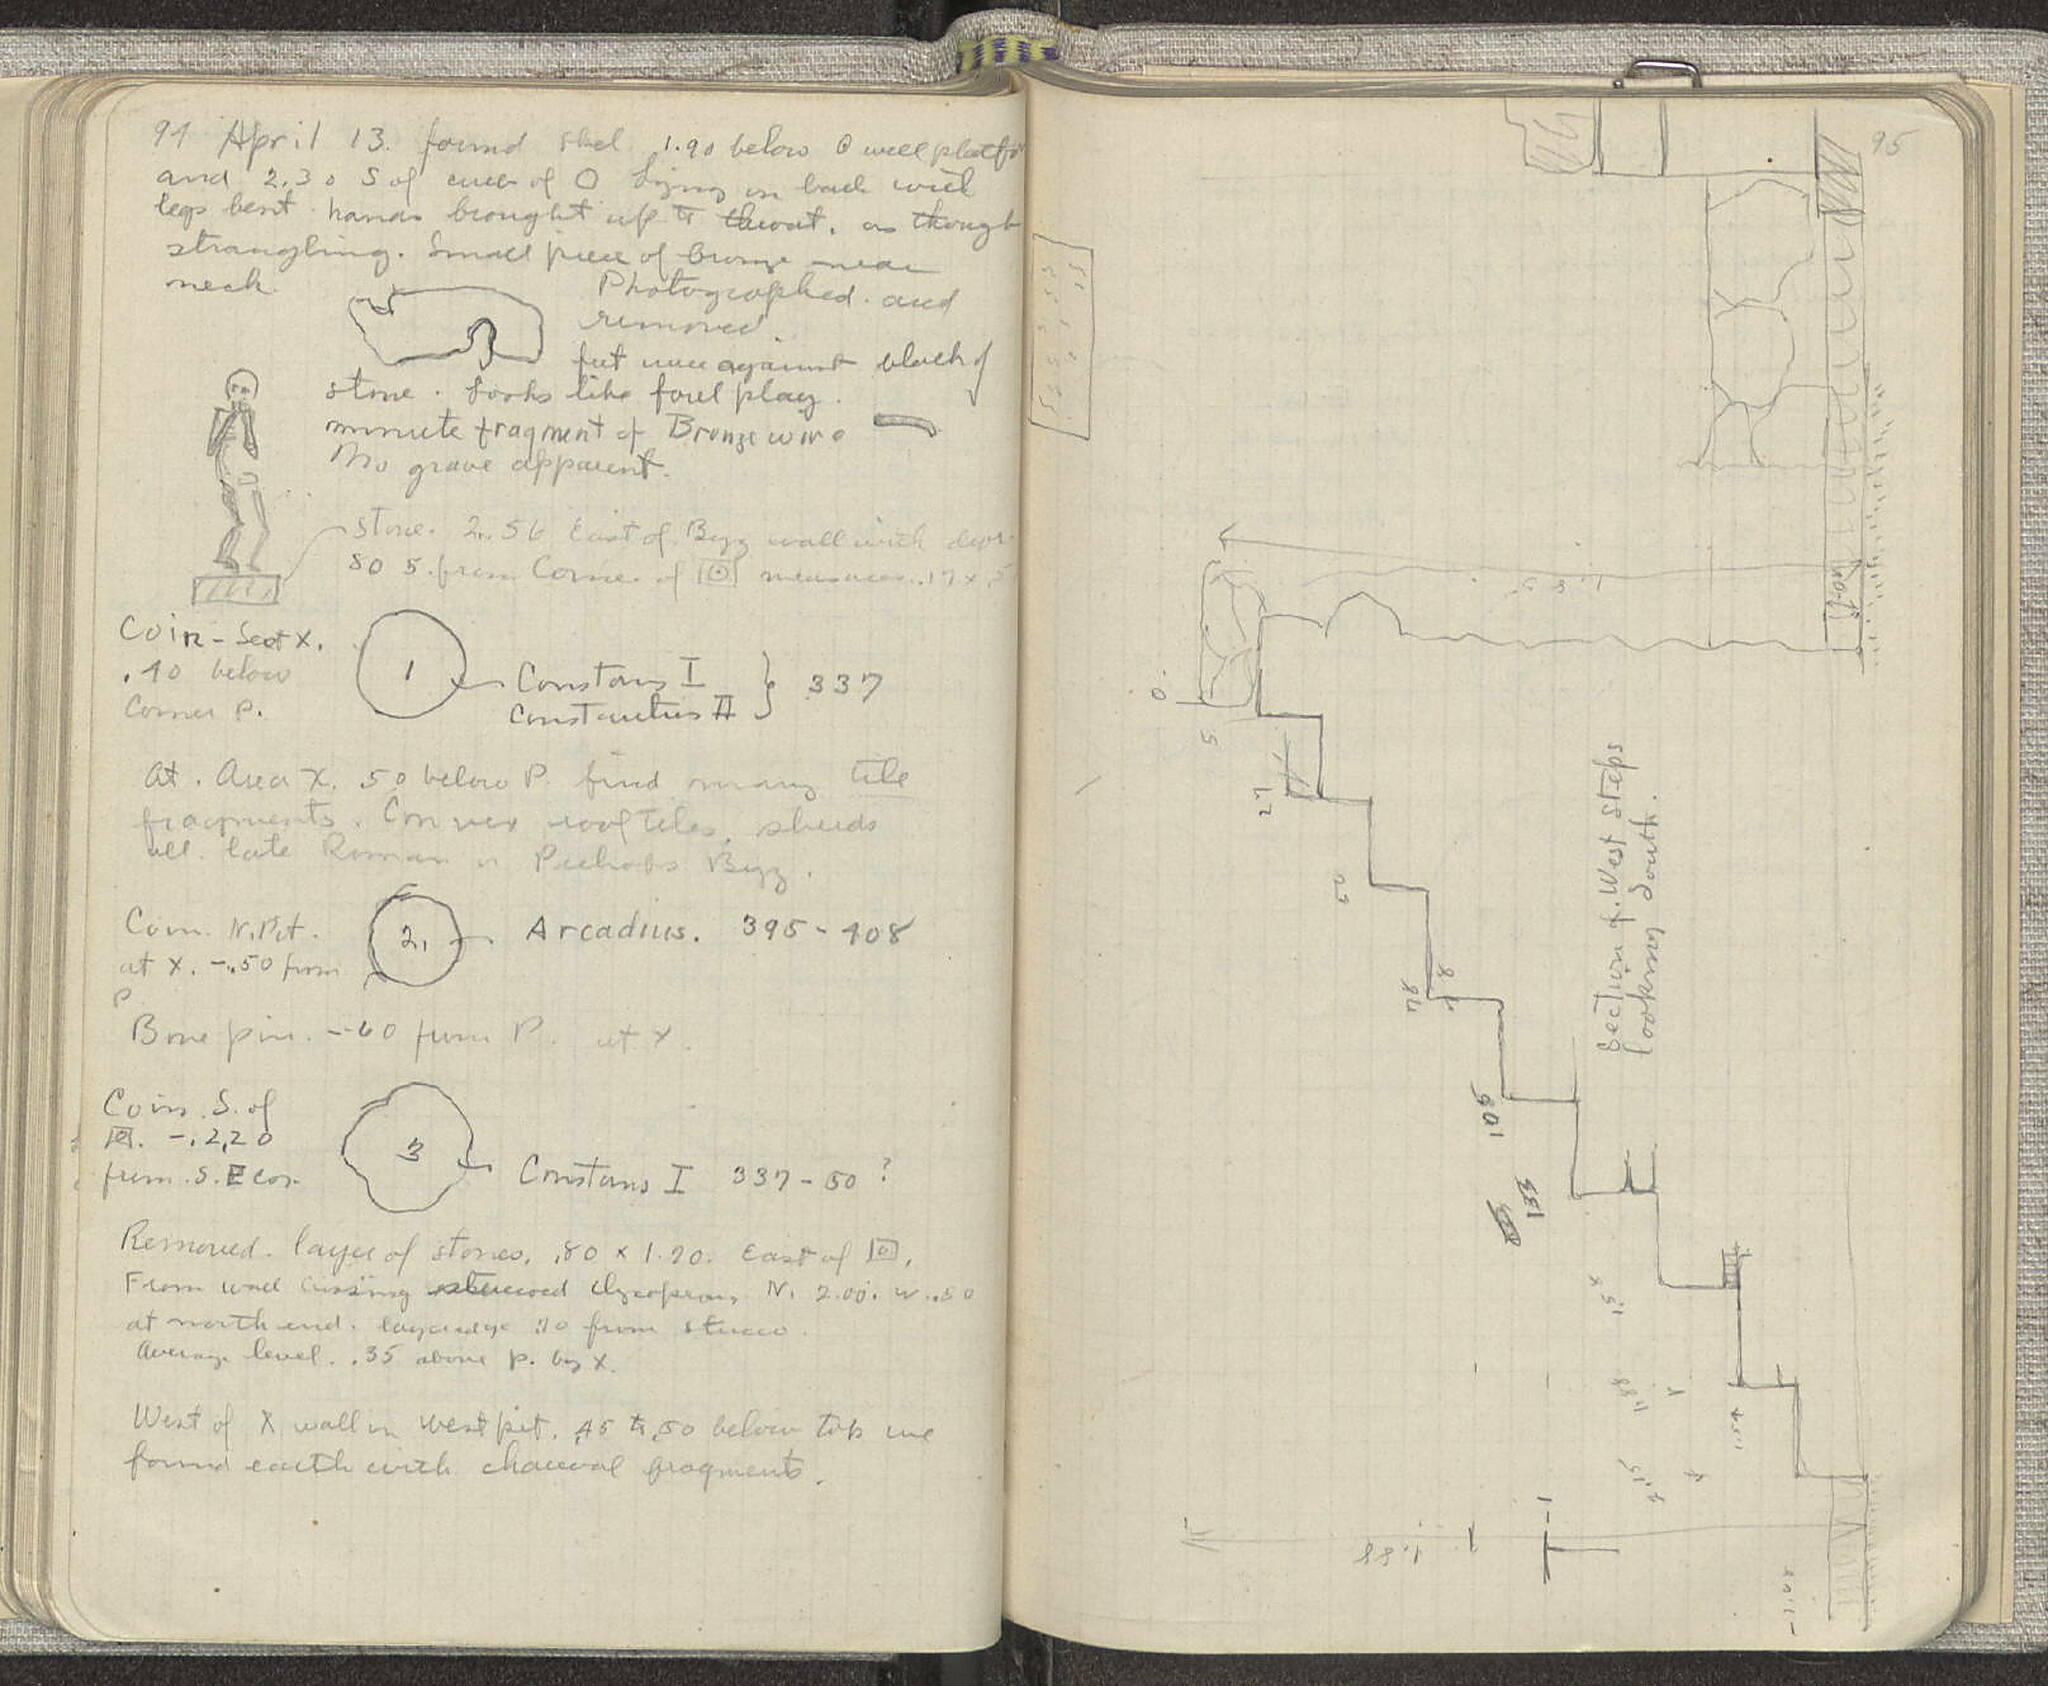 94 April 13. found skel. 1.90 below well platfo
and 2.30 S of of O lying on back with
legs bent. hands brought up to throat, as though
strangling. Small piece of bronze near
neck.
Photographed. and
removed.
feet were against block of
stone. Looks like foul play.
minute fragment of Bronze wire
No grave apparent.
stone. 2.56 East of Byz wall with
80 S. from Corner of measures .17 x
Coin - Sect X.
.40 below
Corner P.
1
Constans I
Constantius II } 337
At. Area X. .50 below P. find many tile
fragments. Convex roof tiles, sherds
all late Roman or Perhaps Byz.
Coin. N. Pit.
at X. -.50 from
P
2.
Arcadius. 395 - 408
Bone pin. -.60 from P. at X.
Coin. S. of
-.2,20
from. S.E cor.
3
Constans I 337 - 50 ?
Removed. layer of stones, .80 x 1.20. East of
From wall crossing N. 2.00. W. .80
at north end. .10 from stucco.
Average level. .35 above p. by X.
West of X wall in west pit. .45 to .50 below top we
found earth with charcoal fragments.
95
Section of West Steps
looking South.
0
5
27
108
135
1.88